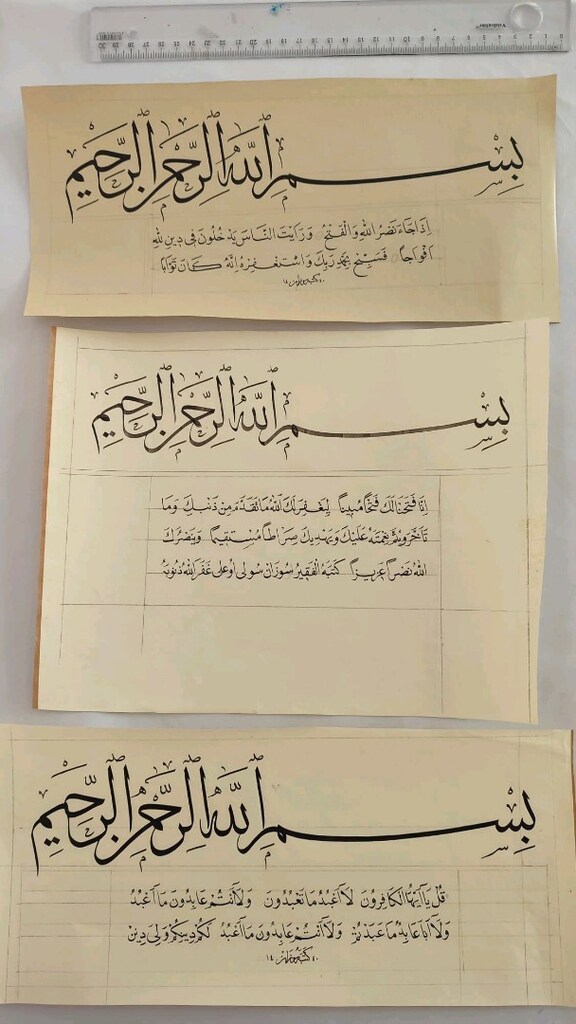 بِسْمِ اللّٰهِ الرَّحْمٰنِ الرَّحِيمِ
اِذَا جَاءَ نَصْرُ اللّٰهِ وَالْفَتْحُ وَرَاَيْتَ النَّاسَ يَدْخُلُونَ فِي دِينِ اللّٰهِ
اَفْوَاجاً فَسَبِّحْ بِحَمْدِ رَبِّكَ وَاسْتَغْفِرْهُ اِنَّهُ كَانَ تَوَّابًا
بِسْمِ اللّٰهِ الرَّحْمٰنِ الرَّحِيمِ
اِنَّا فَتَحْنَا لَكَ فَتْحًا مُبِيناً لِيَغْفِرَ لَكَ اللّٰهُ مَا تَقَدَّمَ مِنْ ذَنْبِكَ وَمَا
تَاَخَّرَ وَيُتِمَّ نِعْمَتَهُ عَلَيْكَ وَيَهْدِيَكَ صِرَاطاً مُسْتَقِيمًا وَيَنْصُرَكَ
اللّٰهُ نَصْراً عَزِيزاً كَتَبَهُ الْفَقِيرُ سوزان شولى اوغلى غَفَرَ اللّٰهُ ذُنُوبَهُ
بِسْمِ اللّٰهِ الرَّحْمٰنِ الرَّحِيمِ
قُلْ يَا اَيُّهَا الْكَافِرُونَ لَا اَعْبُدُ مَا تَعْبُدُونَ وَلَا اَنْتُمْ عَابِدُونَ مَا اَعْبُدُ
وَلَا اَنَا عَابِدٌ مَا عَبَدْتُمْ وَلَا اَنْتُمْ عَابِدُونَ مَا اَعْبُدُ لَكُمْ دِينُكُمْ وَلِيَ دِينِ